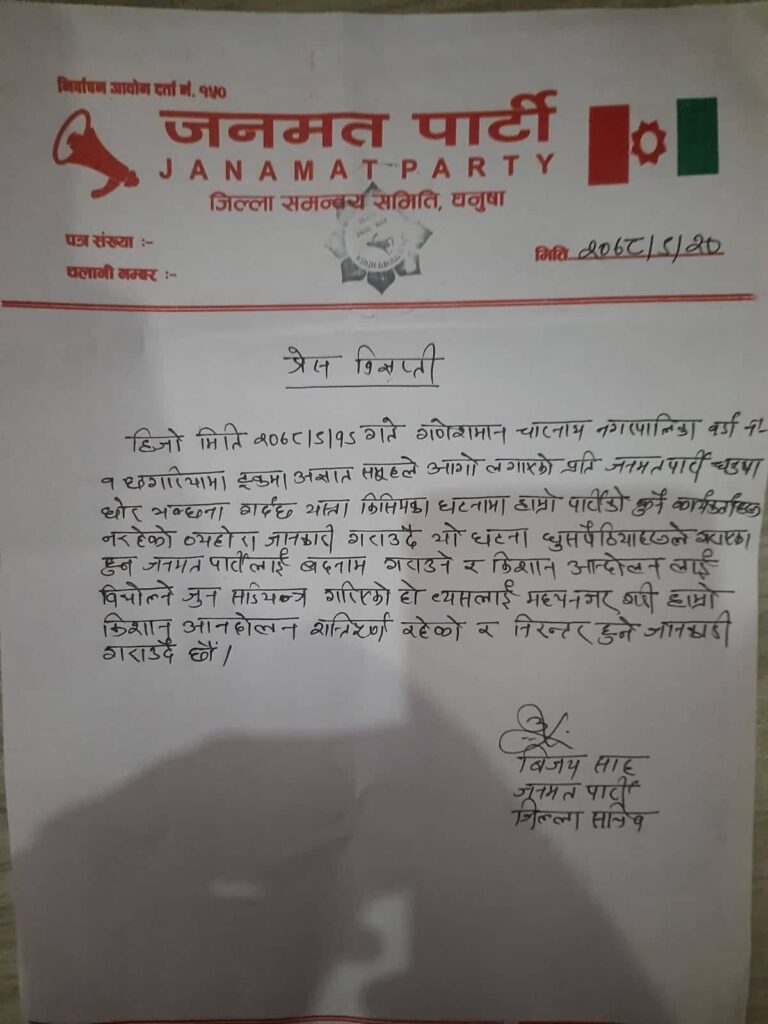 निर्वाचन आयोग दर्ता नं. १५०
जनमत पार्टी
JANAMAT PARTY
जिल्ला समन्वय समिति, धनुषा
पत्र संख्या :-
चलानी नम्बर :-
मिति २०७८/५/२०
प्रेस विज्ञप्ती
हिजो मिति २०७८/५/१९ गते गणेशमान चारनाथ नगरपालिका वर्डा नं-
१ छगरियामा ट्रकमा अज्ञात समूहले आगो लगाएको प्रति जनमत पार्टी
घोर भर्त्छना गर्दछ यास्ता किसिमका घटनामा हाम्रो पार्टीको कुनै कार्यकर्ताहरू
नरहेको व्यहोरा जानकारी गराउदै यो घटना घुसपैठियाहरूले गराएका
हुन जनमत पार्टीलाई बदनाम गराउने र किशान आन्दोलन लाई
विथोल्ने जुन सडियन्त्र गरिएको हो त्यसलाई मध्यनजर गरी हाम्रो
किशान आनदोलन शान्तिपूर्ण रहेको र निरन्तर हुने जानकारी
गराउदै छौं।
बिजय साह
जनमत पार्टी
जिल्ला सचिव